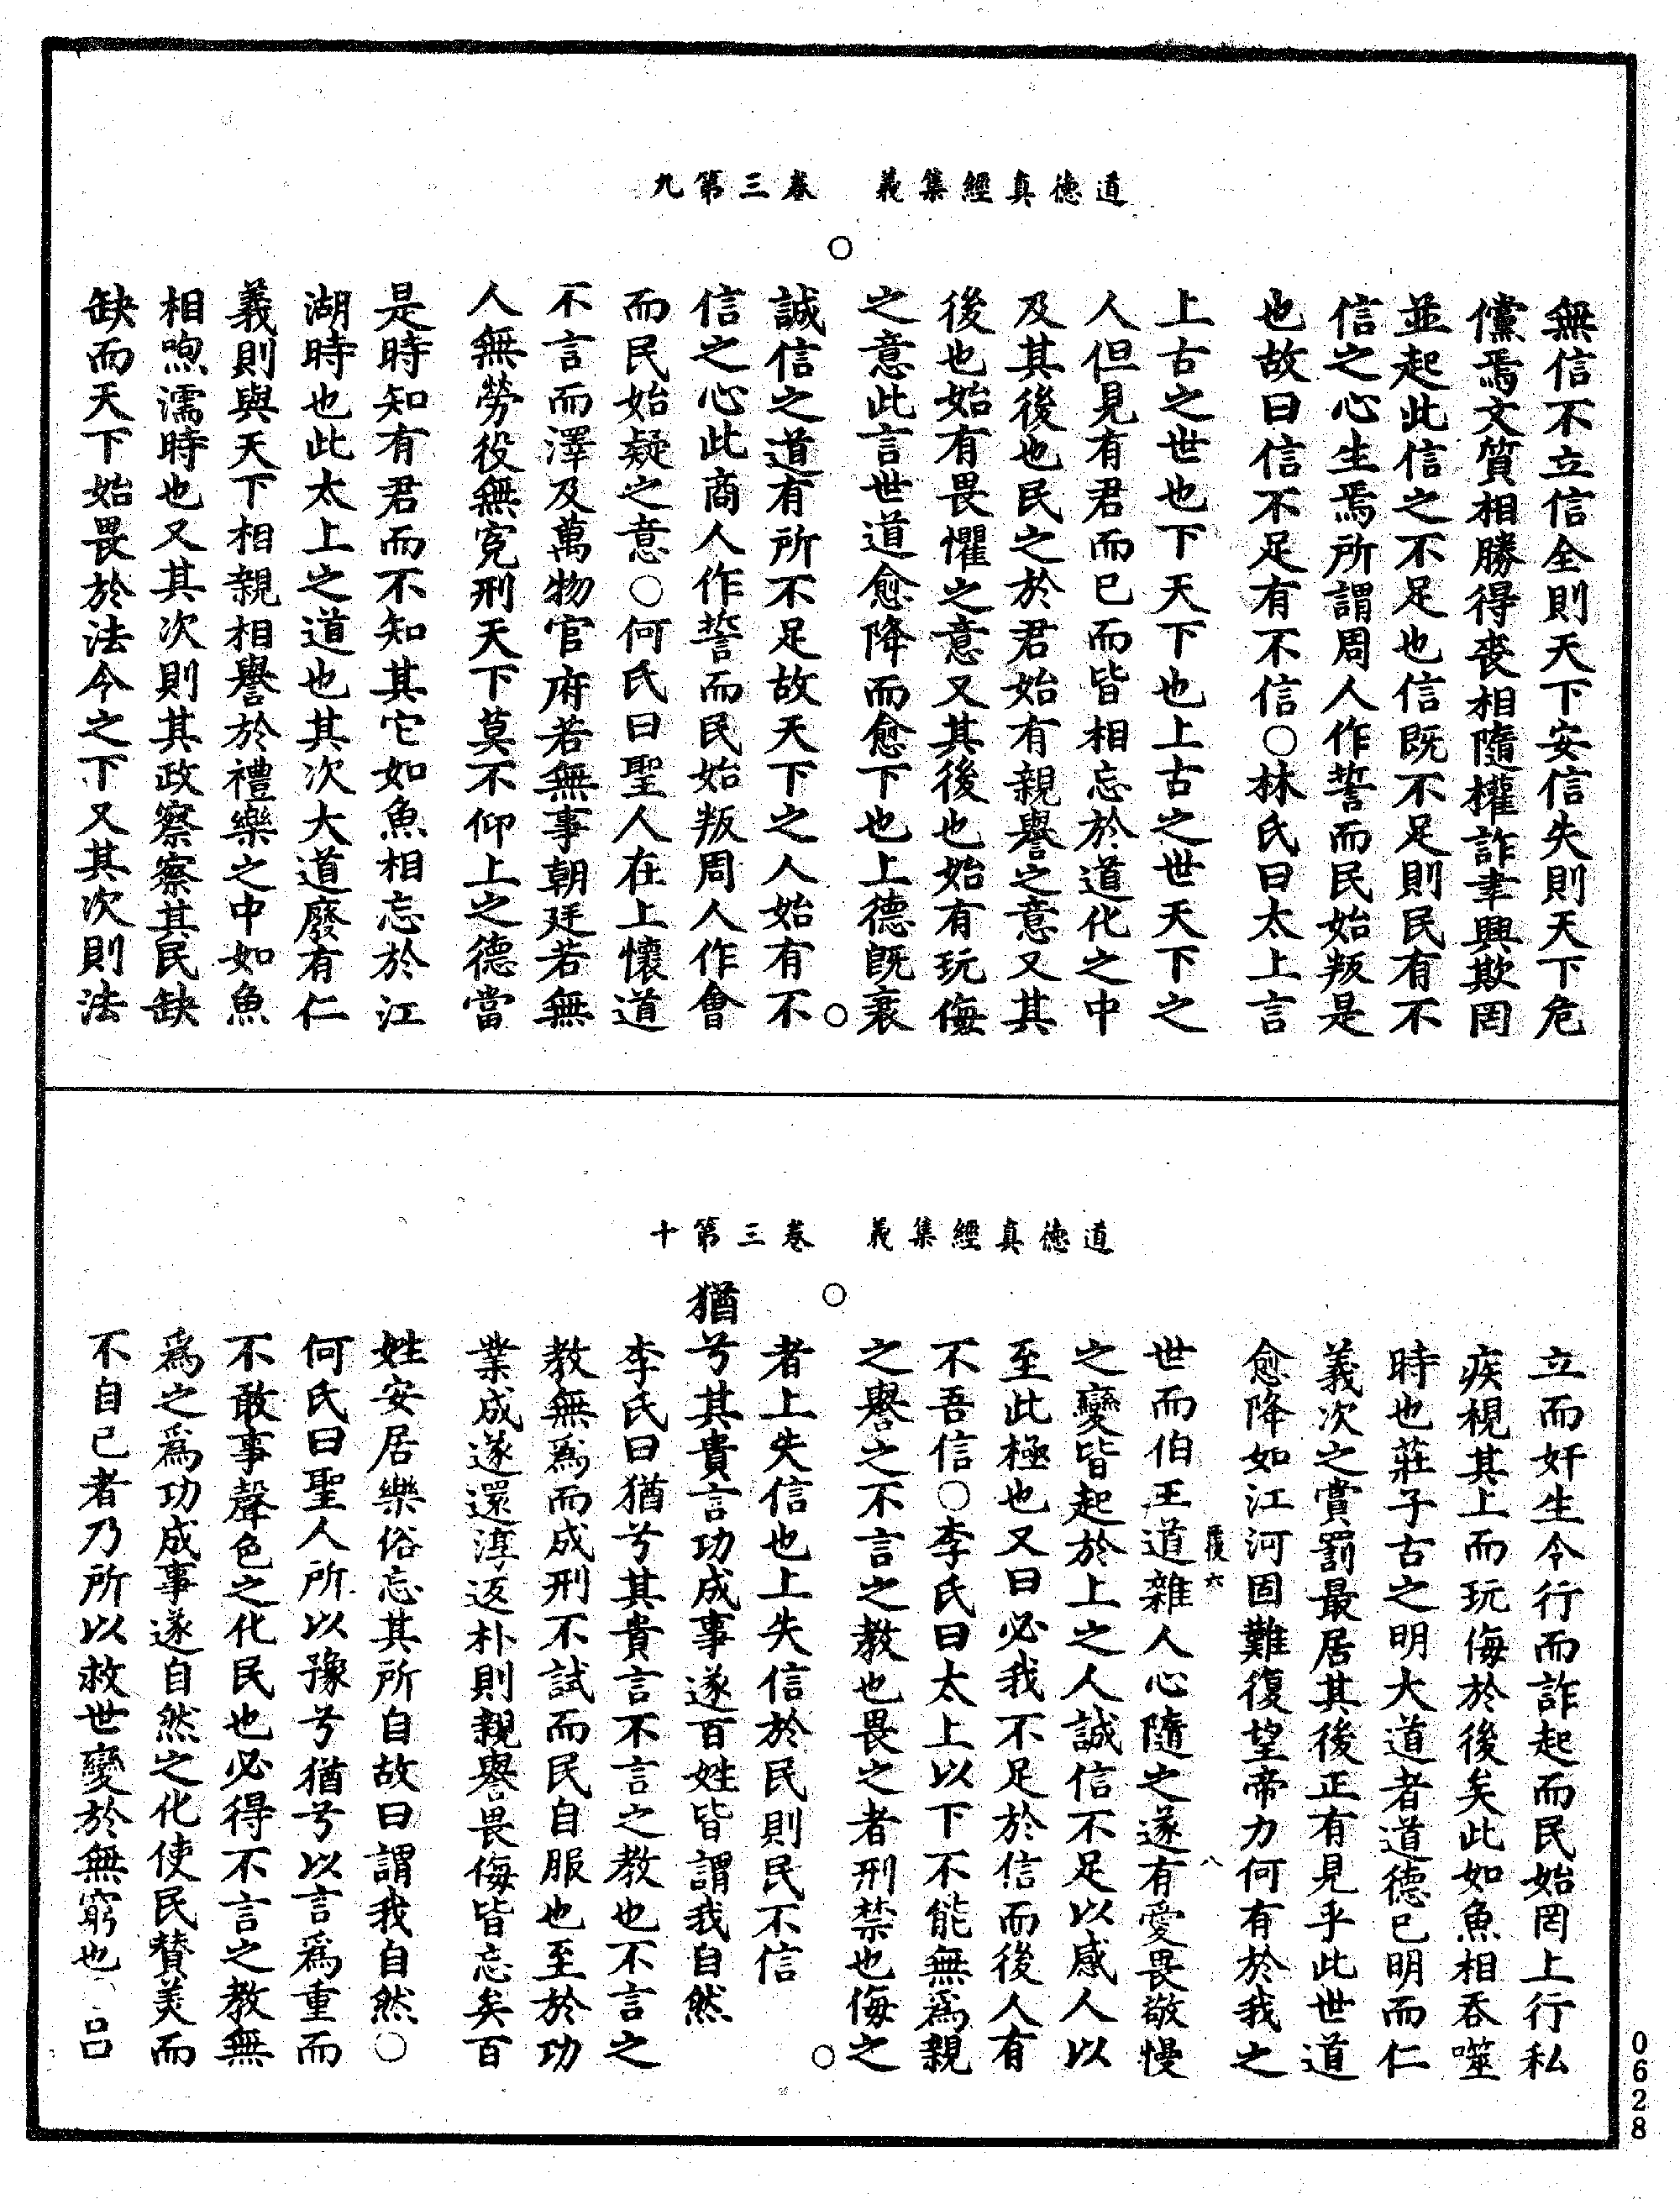 道德真經集義　卷三第九
無信不立信全則天下安信失則天下危
儻焉文質相勝得喪相隨權詐聿興欺罔
並起此信之不足也信既不足則民有不
信之心生焉所謂周人作誓而民始叛是
也故曰信不足有不信○林氏曰太上言
上古之世也下天下也上古之世天下之
人但見有君而已而皆相忘於道化之中
及其後也民之於君始有親譽之意又其
後也始有畏懼之意又其後也始有玩侮
之意此言世道愈降而愈下也上德既衰
誠信之道有所不足故天下之人始有不
信之心此商人作誓而民始叛周人作會
而民始疑之意○何氏曰聖人在上懷道
不言而澤及萬物官府若無事朝廷若無
人無勞役無寃刑天下莫不仰上之德當
是時知有君而不知其它如魚相忘於江
湖時也此太上之道也其次大道廢有仁
義則與天下相親相譽於禮樂之中如魚
相呴濡時也又其次則其政察察其民缺
缺而天下始畏於法令之下又其次則法
道德真經集義　卷三第十
立而奸生令行而詐起而民始罔上行私
疾視其上而玩侮於後矣此如魚相吞噬
時也莊子古之明大道者道德已明而仁
義次之賞罰最居其後正有見乎此世道
愈降如江河固難復望帝力何有於我之
世而伯王道雜人心隨之遂有愛畏敬慢
之變皆起於上之人誠信不足以感人以
至此極也又曰必我不足於信而後人有
不吾信○李氏曰太上以下不能無為親
之譽之不言之教也畏之者刑禁也侮之
者上失信也上失信於民則民不信
猶兮其貴言功成事遂百姓皆謂我自然
李氏曰猶兮其貴言不言之教也不言之
教無為而成刑不試而民自服也至於功
業成遂還淳返朴則親譽畏侮皆忘矣百
姓安居樂俗忘其所自故曰謂我自然○
何氏曰聖人所以豫兮猶兮以言為重而
不敢事聲色之化民也必得不言之教無
為之為功成事遂自然之化使民贊美而
不自已者乃所以救世變於無窮也　呂
八
0628